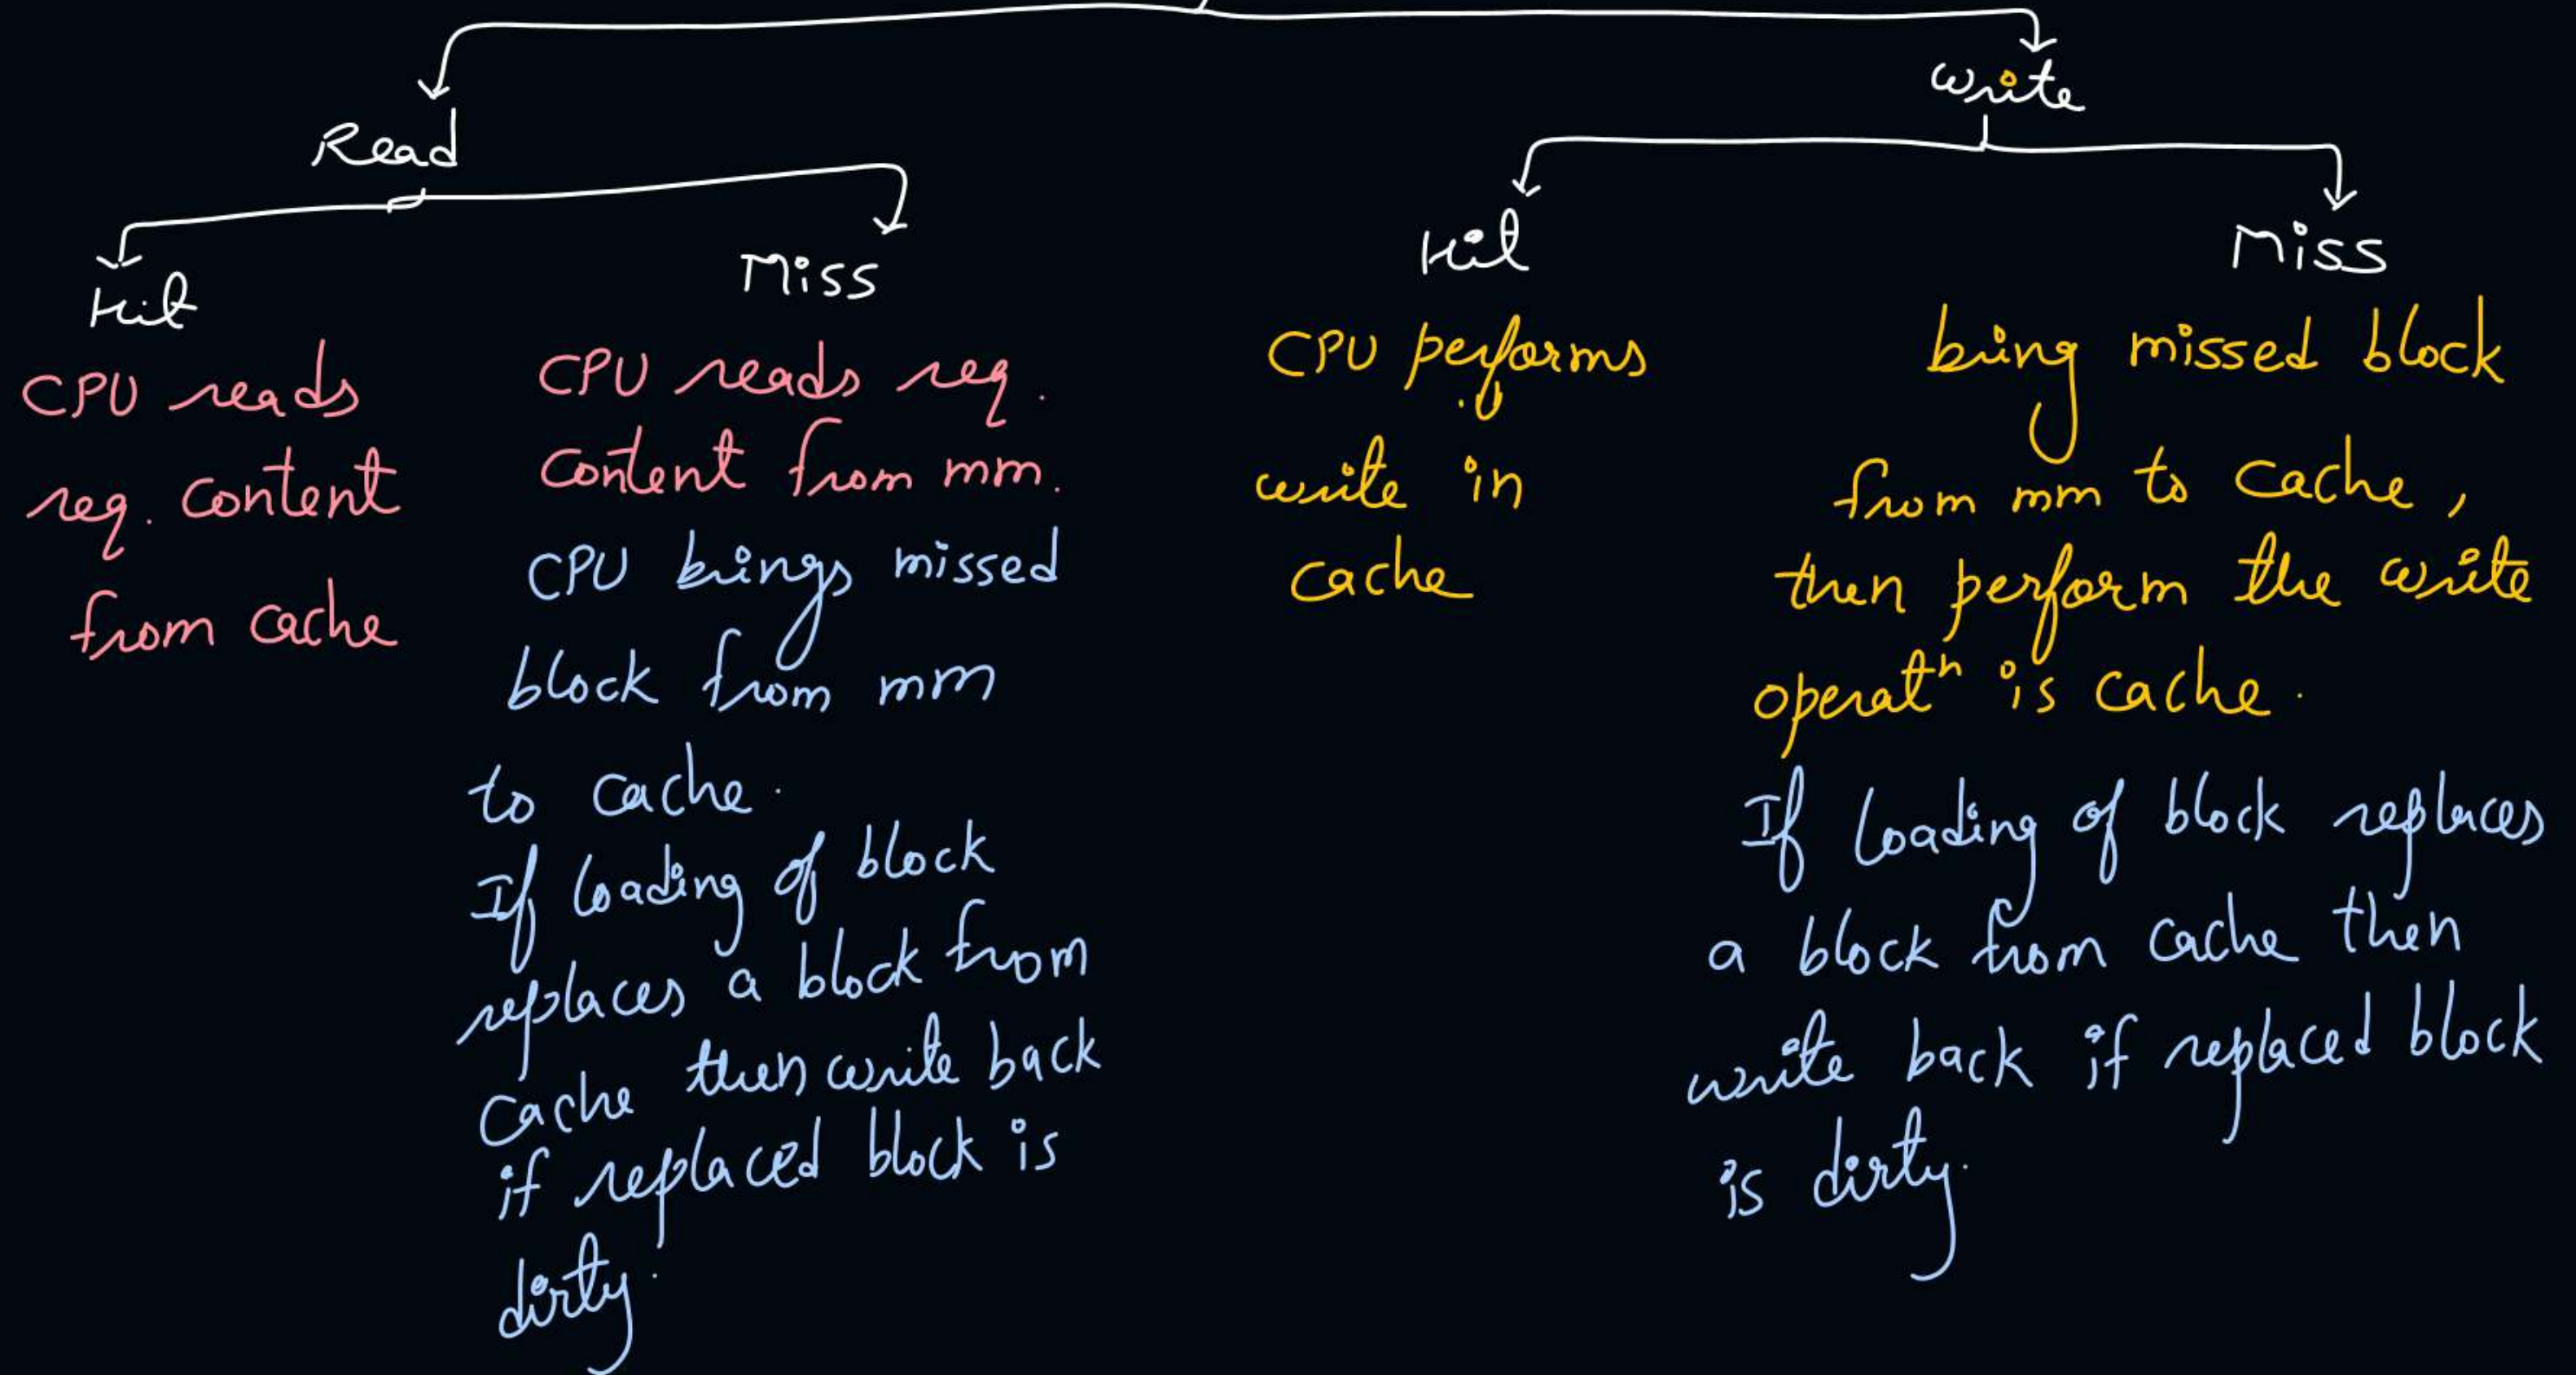 Read
Hit
CPU reads
req. content
from cache
Miss
CPU reads req.
content from mm.
CPU brings missed
block from mm
to cache.
If loading of block
replaces a block from
cache then write back
if replaced block is
dirty.
write
Hit
CPU performs
write in
cache
Miss
bring missed block
from mm to cache,
then perform the write
operatⁿ is cache.
If loading of block replaces
a block from cache then
write back if replaced block
is dirty.